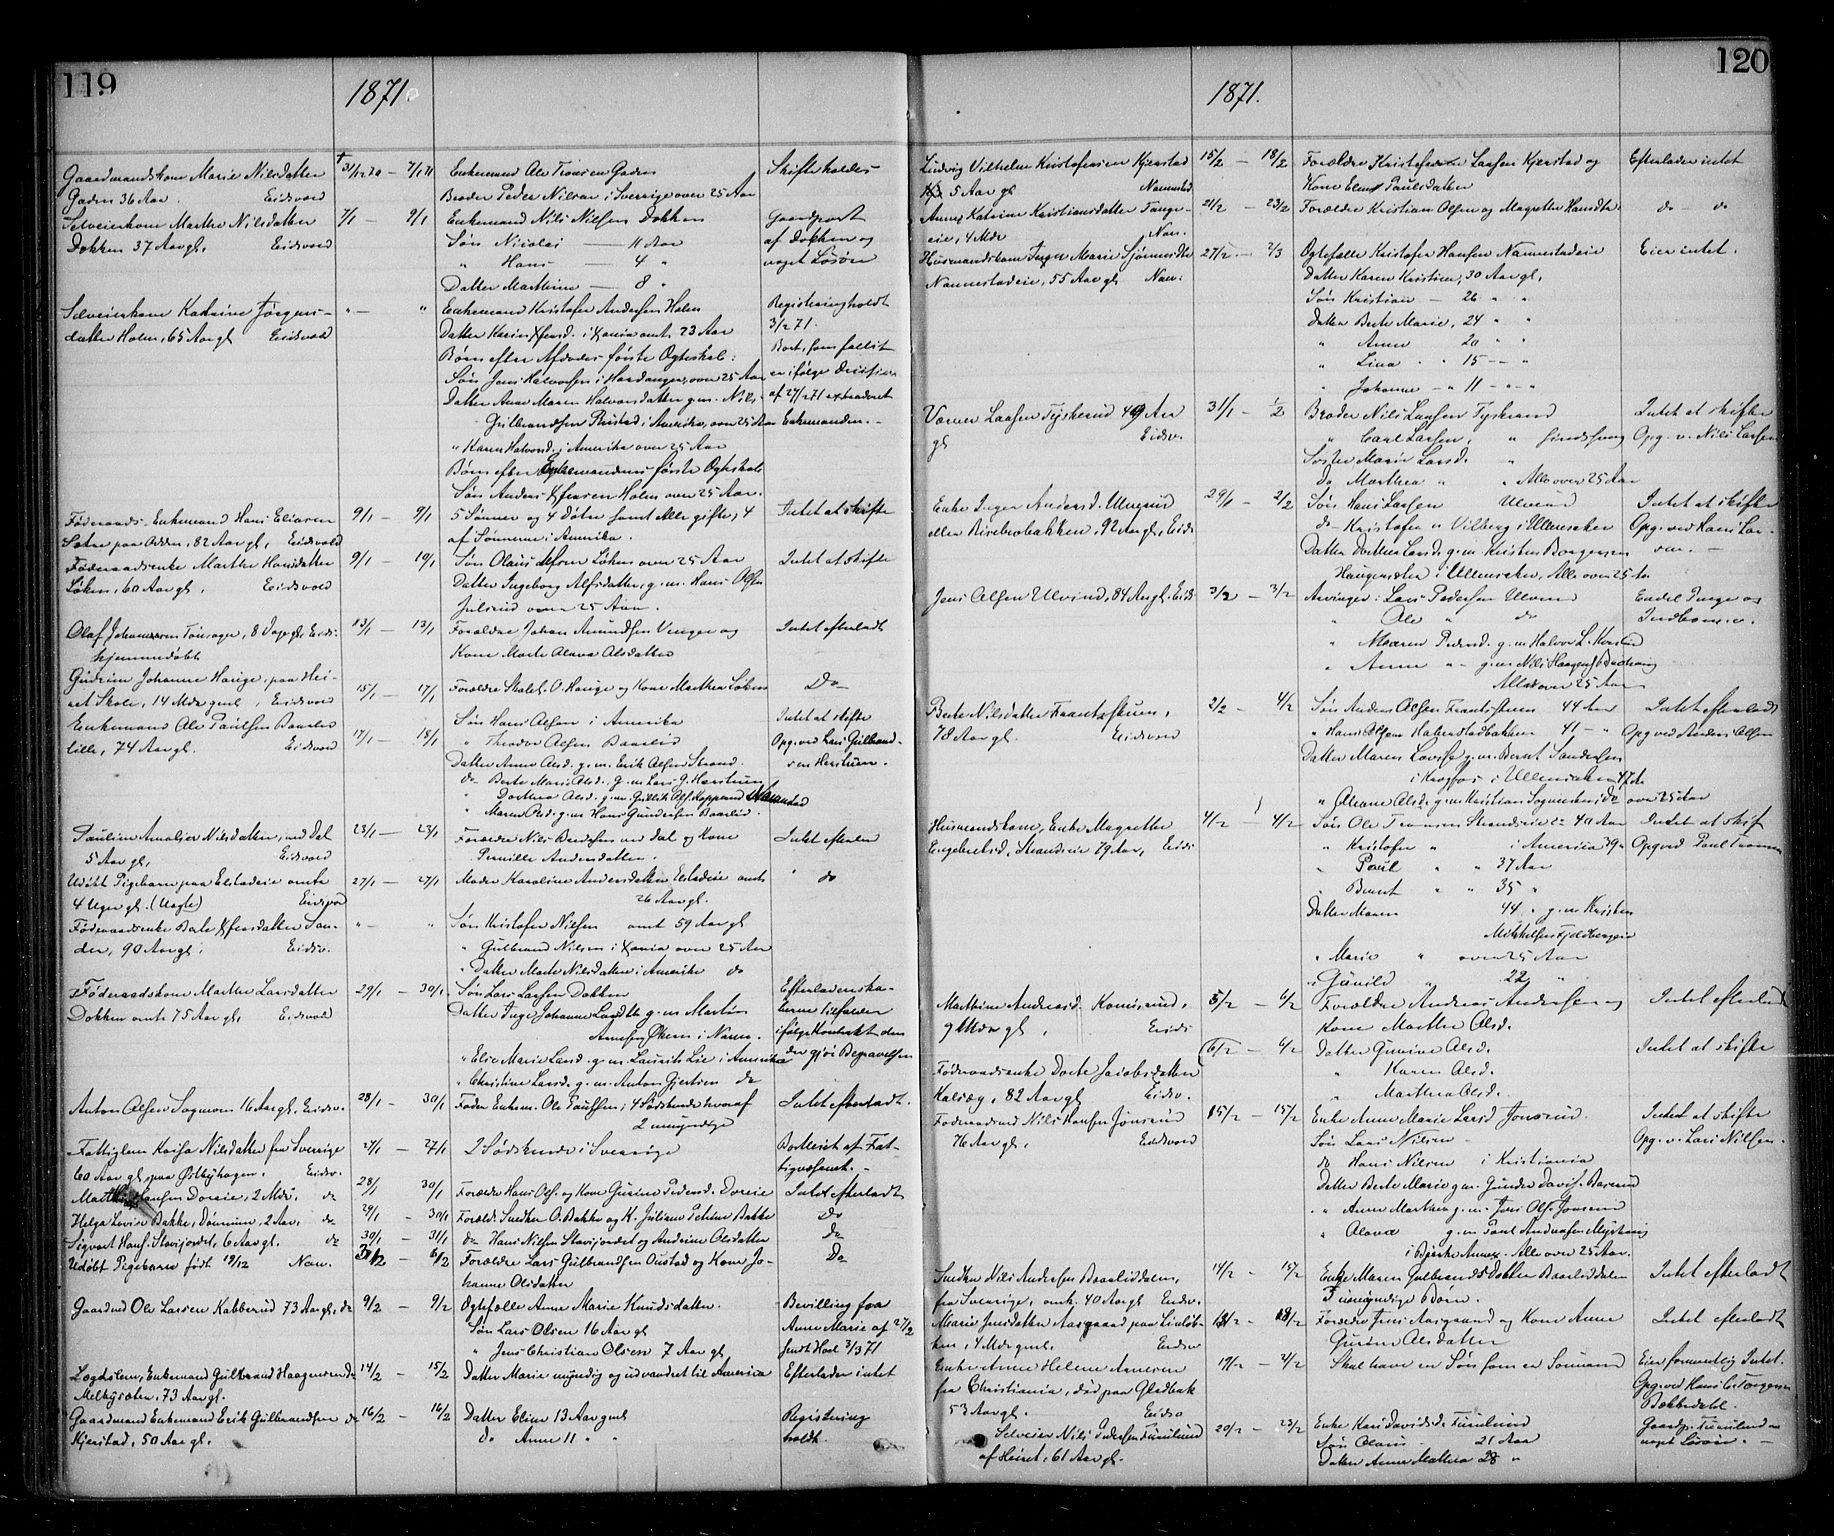 119
1871.
Gaardmandskone Marie Nilsdatter
Gaden 36 Aar. Eidsvold
31/12 70 — 7/1 71
Enkemand Ole Tronsen Gaden
Broder Peder Nilsen i Sverrige over 25 Aar
Skifte holdes
Selveierkone Marthe Nilsdatter
Dokken 37 Aar gl. Eidsvold
7/1 — 9/1
Enkemand Nils Nilsen Dokken
Søn Nicolai — 11 Aar
" Hans — 4 "
Datter Marthine — 8 "
Gaardpart
af Dokken og
noget Løsøre
Selveierkone Katrine Jørgens-
datter Holm, 65 Aar gl. Eidsvold
" — "
Enkemand Kristofer Andersen Holm
Datter Karin Xfersd. i Xania omt. 23 Aar
Børn efter Afdødes første Ægteskab:
Søn Jens Halvorsen i Hardanger, over 25 Aar
Datter Anne Maren Halvorsdatter g.m. Nils
Gulbrandsen Rustad i Amerika, over 25 Aar
" Karen Halvorsd. i Amerika over 25 Aar
Børn efter Enkemandens første Ægteskab
Søn Anders Xfersen Holm over 25 Aar.
Registrering holdt
3/2 71.
Boet, som fallit
er ifølge Decision
af 27/2 71 extraderet
Enkemanden. -
Føderaads Enkemand Hans Eliasen
Sætre paa Odden, 82 Aar gl. Eidsvold
9/1 — 9/1
5 Sønner og 4 Døtre samt Alle gifte, 4
af Sønnerne i Amerika.
Intet at skifte
Føderaadsenke Marthe Hansdatter
Løken, 60 Aar gl. Eidsvold
9/1 — 10/1
Søn Olaus Alfsen Løken over 25 Aar
Datter Ingeborg Alfsdatter, g.m. Hans Olsen
Julsrud over 25 Aar.
Intet at skifte
Olaf Johannesen Tønsager, 8 Dage gl. Eids.
hjemmedøbt
13/1 — 13/1
Forældre Johan Amundsen Venger og
Kone Marte Olava Olsdatter
Intet efterladt
Gudrun Johanne Hauge, paa Hei-
ret Skole, 14 Mdr gml. Eidsvold
15/1 — 17/1
Forældre Skolel. O. Hauge og Kone Marthea Løken
Do
Enkemand Ole Paulsen Baarlid
lille, 74 Aar gl. Eidsvold
17/1 — 18/1
Søn Hans Olsen i Amerika
" Theodor Olsen Baarlid
Datter Anne Olsd. g.m. Erik Olsen Strand.
do Berte Marie Olsd. g.m. Lars G. Hærstrum
" Dorthea Olsd. g.m. Gullik Ols. Kopperud Nannestad
" Maren Olsd. g.m. Hans Gundersen Baarlid.
Intet at skifte
Opg. ved Lars Gulbrand-
sen Hærstrum.
Pauline Amalie Nilsdatter, ved Dal
5 Aar gl. Eidsvold
23/1 — 23/1
Forældre Nils Berdesen ved Dal og Kone
Pernille Andersdatter.
Intet efterlad
Udøbt Pigebarn paa Elstadeie omtr
4 Uger gl. (Uægte) Eidsvold
27/1 — 27/1
Moder Karoline Andersdatter Elstadeie omt.
26 Aar gl.
" do
Føderaadsenke Berte Xfersdatter Son-
der, 90 Aar gl. Eidsv.
" — "
Søn Kristofer Nilsen omt 59 Aar gl
" Gulbrand Nilsen i Xania over 25 Aar
" Datter Marte Nilsdatter i Amerika do
Føderaadskone Marthe Larsdatter
Dokken omtr. 75 Aar gl. Eidsvold
29/1 — 30/1
Søn Lars Larsen Dokken
Datter Inge Johanne Larsdtr g.m. Martin
Arnesen Økern i Nannes.
" Elie Marie Larsd. g.m. Laurits Lie i Amerika
" Christine Larsd. g.m. Anton Gjertsen do
Efterladenska-
berne tilfalder
ifølge Kontrakt den
der gjør Begravelsen
Anton Olsen Sogmoen 16 Aar gl. Eidsv.
28/1 — 30/1
Fader Enkem. Ole Paulsen, 4 Sødskende hvoraf
2 umyndige
Intet efterladt.
Fattiglem Kaisa Nilsdatter fra Sverrige
60 Aar gl. paa Østbyhagen. Eidsv.
27/1 — 27/1
2 Sødskende i Sverrige
Bortleiet af Fat-
tigvæsenet. -
Hansen Doreie, 2 Mdr. do
28/1 30/1
Forældre Hans Ols. og Kone Gurine Pedersd. Doreie
Intet efterladt
Helga Lovise Bakke, Dønnum, 2 Aar. do
29/1 — 30/1
Foræld. Snedker O. Bakke og K. Juliane Petrine Bakke
Do
Sigvart Hans. Stavsjordet, 6 Aar gl. do
30/1 — 31/1
do Hans Nilsen Stavsjordet og Andrine Olsdatter
Do
Udøbt Pigebarn født 19/12 Nan.
— 6/2
Forældre Lars Gulbrandsen Onstad og Kone Jo-
hanne Olsdatter
Do
Gaardmd Ole Larsen Kabberud 73 Aar gl. do
9/2 — 9/2
Ægtefælle Anne Marie Knudsdatter.
Søn Lars Olsen 16 Aar gl
" Jens Christian Olsen 7 Aar gl
Bevilling for
Anne Marie af 27/2
sendt Hosl 3/3 71
Lægdslem, Enkemand Gulbrand Haagensen do
Melbysæten, 73 Aar gl.
14/2 — 15/2
Datter Marie myndig og udvandret til America
Efterlader intet
Gaardmand Enkemand Erik Gulbrandsen do
Kjerstad, 50 Aar gl.
16/2 — 16/2
Datter Eline 13 Aar gml
Do Anne 11 " "
Registrering
holdt.
120
1871.
Ludvig Vilhelm Kristofersen Kjerstad
5 Aar gl Nannestad
15/2 — 18/2
Forældre Kristofer Larsen Kjerstad og
Kone Elen Paulsdatter
Efterlader intet
Anne Katrine Kristiansdatter Tange-
eie, 4 Mdr Nan.
21/2 — 23/2
Forældre Kristian Olsen og Magrethe Hansdtr
do — do
Husmandskone Inger Marie Sjønnesdtr
Nannestadeie, 55 Aar gl. Nan.
27/2 — 2/3
Ægtefælle Kristofer Hansen Nannestadeie
Datter Karen Kristine, 30 Aar gl.
Søn Kristian — 26 " "
Datter Berte Marie, 24 " "
" Anne 20 " "
" Lina " 15 — "
" Johanne — " 11 — " "
Eier intet.
Verner Larsen Tyskerud 49 Aar
gl Eidsv.
31/1 — 1/2
Broder Nils Larsen Tyskerud
" Carl Larsen, "
Søster Marie Larsd. "
Do Marthea " " Alle over 25 Aar
Intet at skifte
Opg. v. Nils Larsen
Enke Inger Andersd. Ulverud
eller Risebrobakken, 92 Aar gl. Eids
29/1 — 2/2
Søn Hans Larsen Ulverud
do Kristofer " Vilberg i Ullensaker
Datter Dorthea Larsd. g.m. Kristen Borgersen
Haugensæter i Ullensaker, Alle over 25 Aar
Intet at skifte
Opg. ved Hans Lar-
sen. -
Jens Olsen Ulvind, 84 Aar gl. Eids
3/2 — 3/2
Arvinger: Lars Pedersen Ulverud
" Ole " do
" Maren Pedersd. g.m. Halvor L.
" Anne " g.m. Nils Haagens.
Alle over 25 Aar
Endel Penge og
Indbo m.v.
Berte Nilsdatter Frantsstuen,
78 Aar gl. Eidsvold
2/2 — 4/2
Søn Anders Olsen Frantsstuen 44 Aar
" Hans Olsen Halvorstadbakken 41 — "
Datter Maren Lovise g.m. Bernt Sandersen
i Krogfos i Ullensaker 47 do
" Oleane Olsd. g.m. Kristian do over 25 Aar
Intet efterladt
Opg ved Anders Olsen
Husmandskone, Enke Magrethe
Engebretsd, Strandeie 79 Aar, Eids
4/2 — 4/2
Søn Ole Tronsen Strandeie 40 Aar
" Kristofer " i America 39 "
" Paul " " 37 Aar
" Bernt " " 35 "
Datter Maren 44 " g.m. Kristen
Mikkelsen Fjeldbergeie
" Marie " over 25 Aar
" Gunild " 22 "
Intet at skif
Opg ved Paul Tronsen
Marthine Andreasd. Komisrud,
9 Mdr gl. Eids
5/2 — 6/2
Forældre Andreas Andersen og
Kone Marthe Olsd.
Intet efterladt
Føderaadsenke Dorte Jacobsdatter
Kalvæg, 82 Aar gl. Eidsv.
6/2 — 6/2
Datter Gurine Olsd.
" Karen Olsd.
" Marthea Olsd.
Intet at skifte
Føderaadmd Nils Hansen Jønsrud
76 Aar gl. Eidsvold
15/2 — 15/2
Enke Anne Marie Larsd Jonsrud.
Søn Lars Nilsen
do Hans Nilsen i Kristiania
Datter Berte Marie g.m. Gunder Davids. Bøverud
" Anne Marthea g.m. Jens Ols. Jonsrud
" Olava g.m. Paul Andersen
i Bjerke Annex. Alle over 25 Aar.
Intet at skifte
Opg. v. Lars Nilsen.
Snedker Nils Andersen Baarliddalen,
fra Sverrige, omtr. 40 Aar gl. Eidsv.
14/2 — 15/2
Enke Maren Gulbrandsdatter Baarliddalen
3 umyndige Børn.
Intet efterladt
Marie Jensdatter Aasgaard paa
4 Mdr gml. Eidsv
18/2 — 18/2
Forældre Jens Aasgaard og Kone Anne
Gurine Olsdatter
Intet efterladt
Enke Anne Helene Arnesen
fra Christiania, død paa Gladbak
53 Aar gl. Eidsv
19/2 — 21/2
Skal have en Søn som er Sømand
Eier formentlig Intet.
Opg. ved Hans C. Torgersen
Bækkedahl.
Selveier Nils Pedersen Furulund
af Heiret, 61 Aar gl.
20/2 — 23/2
Enke Kari Davidsdr Furulund
Søn Olaus 21 Aar
Datter Anne Mathea 28 "
Gaardp. Furulund
noget Løsøre.